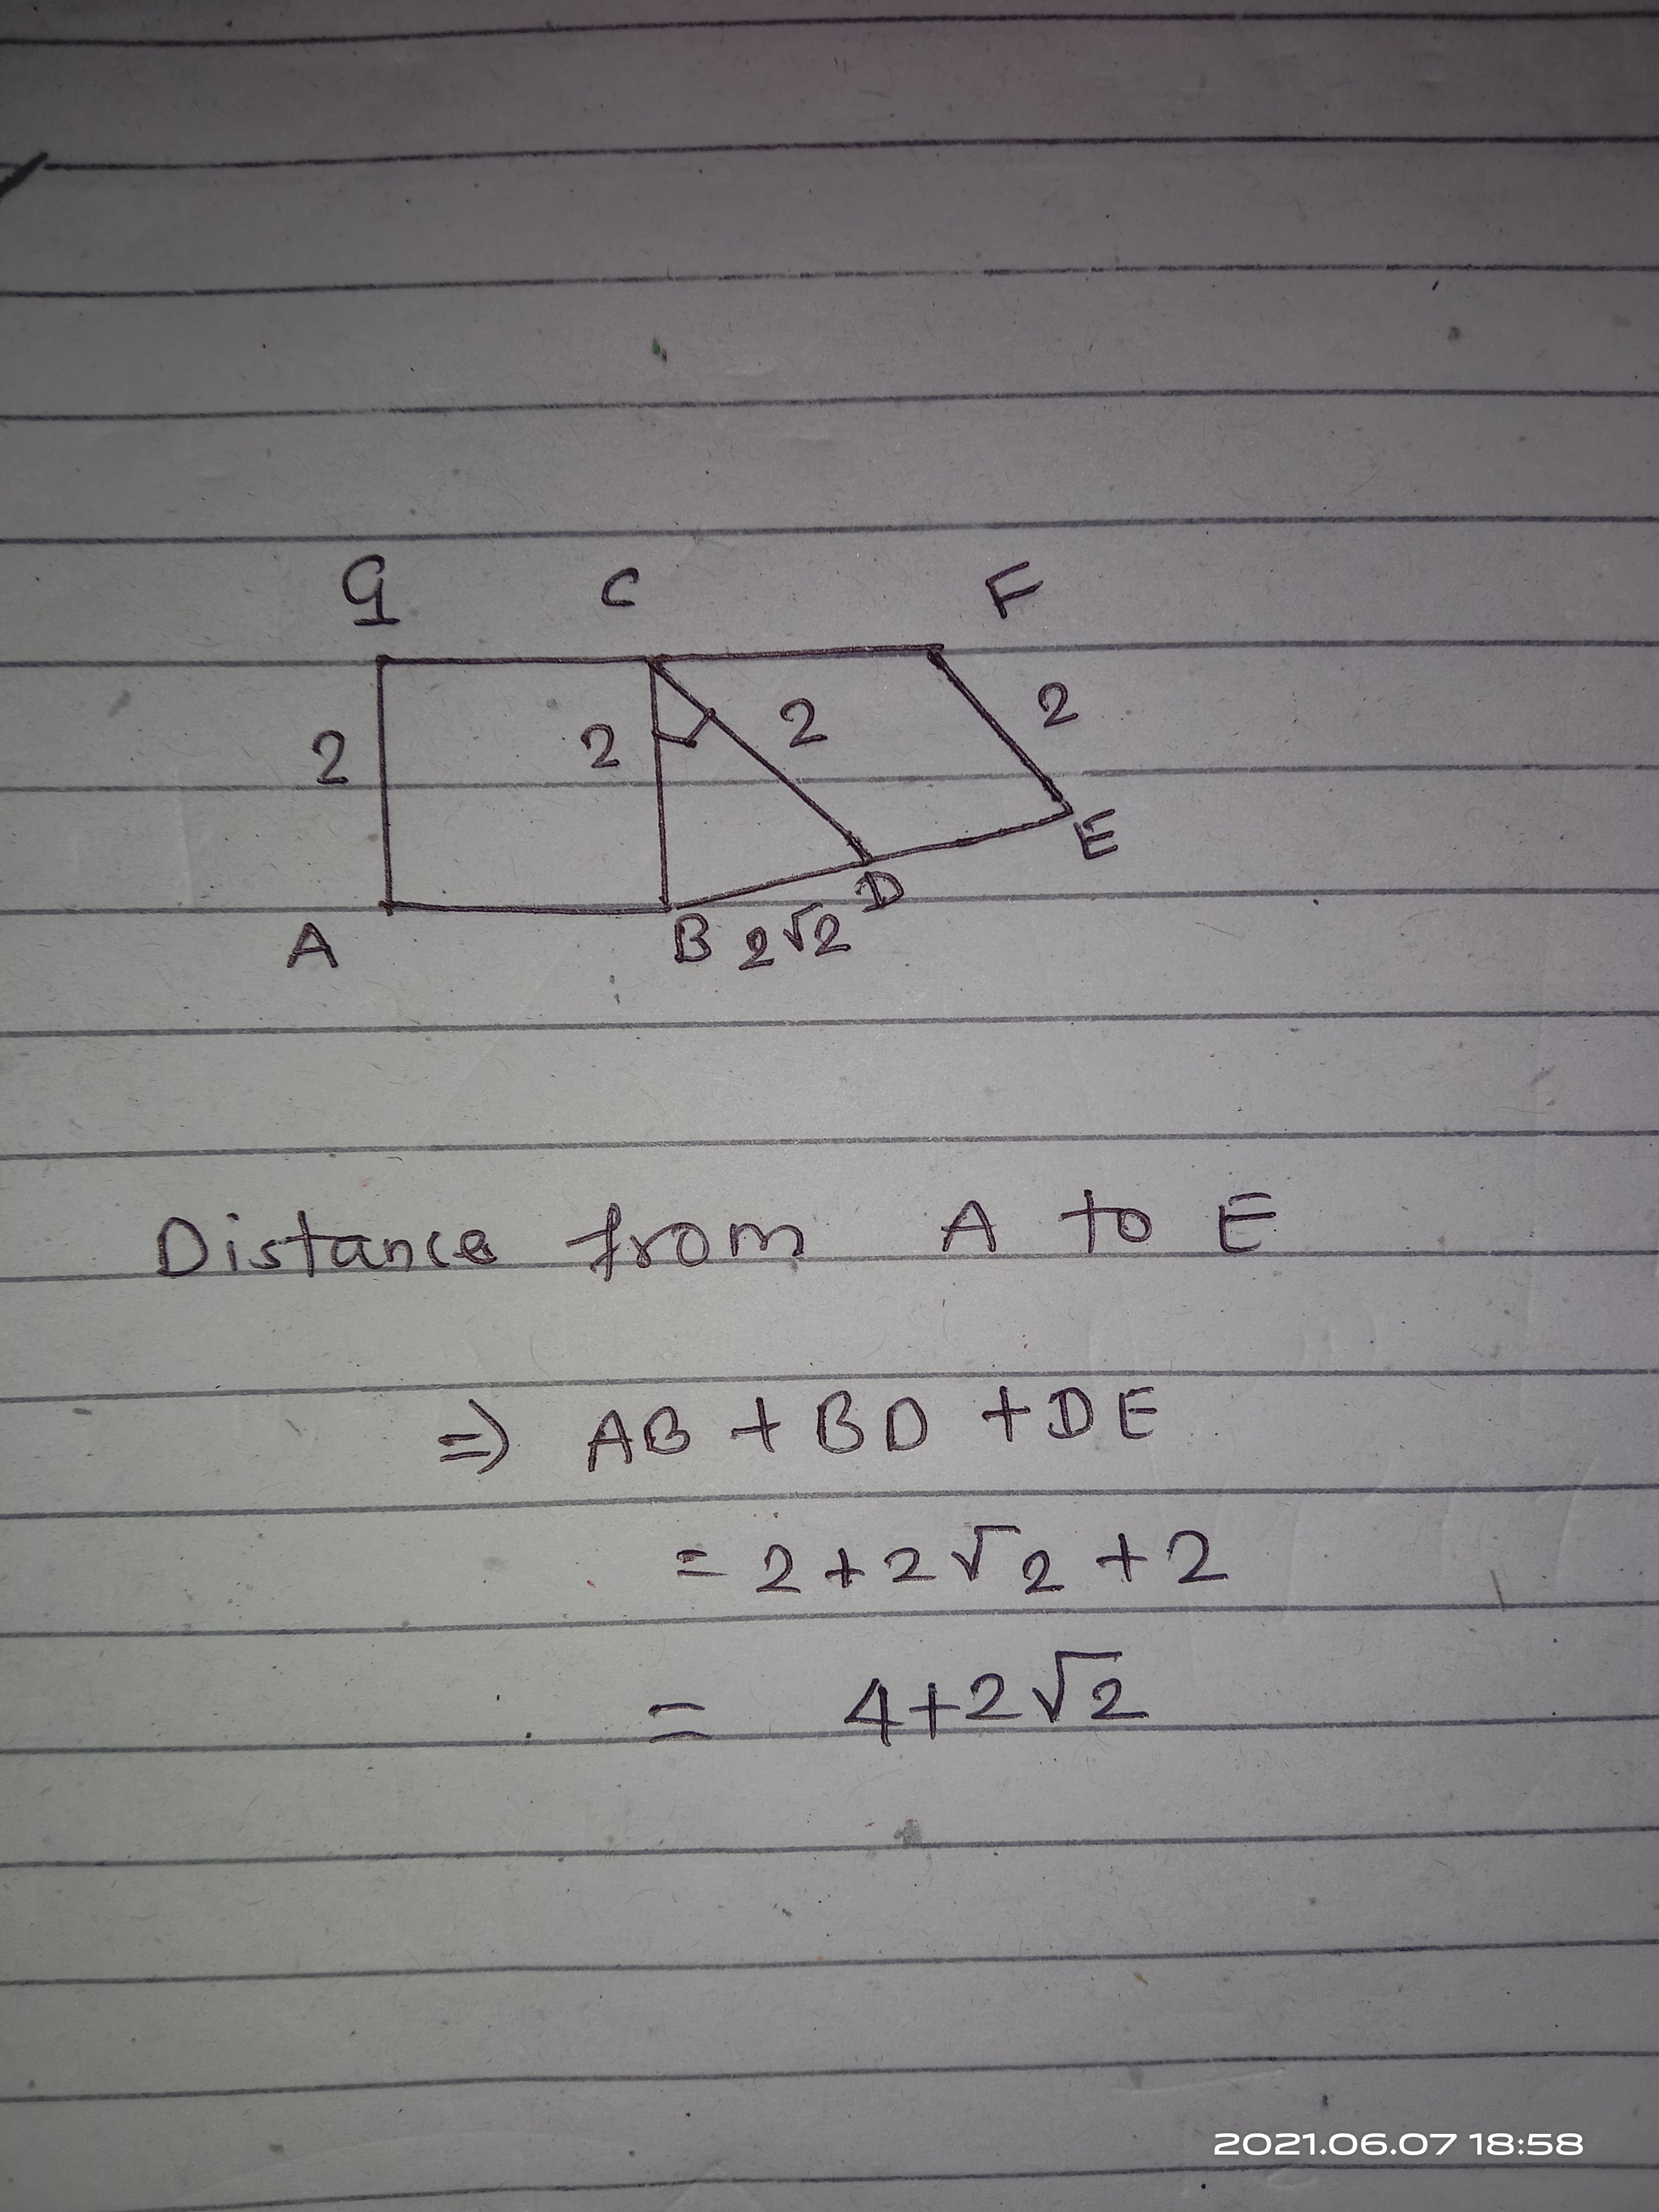 G C F
2 2 2 2
E
D
A B 2√2
Distance from A to E
⇒ AB + BD + DE
= 2 + 2√2 + 2
= 4 + 2√2
2021.06.07 18:58